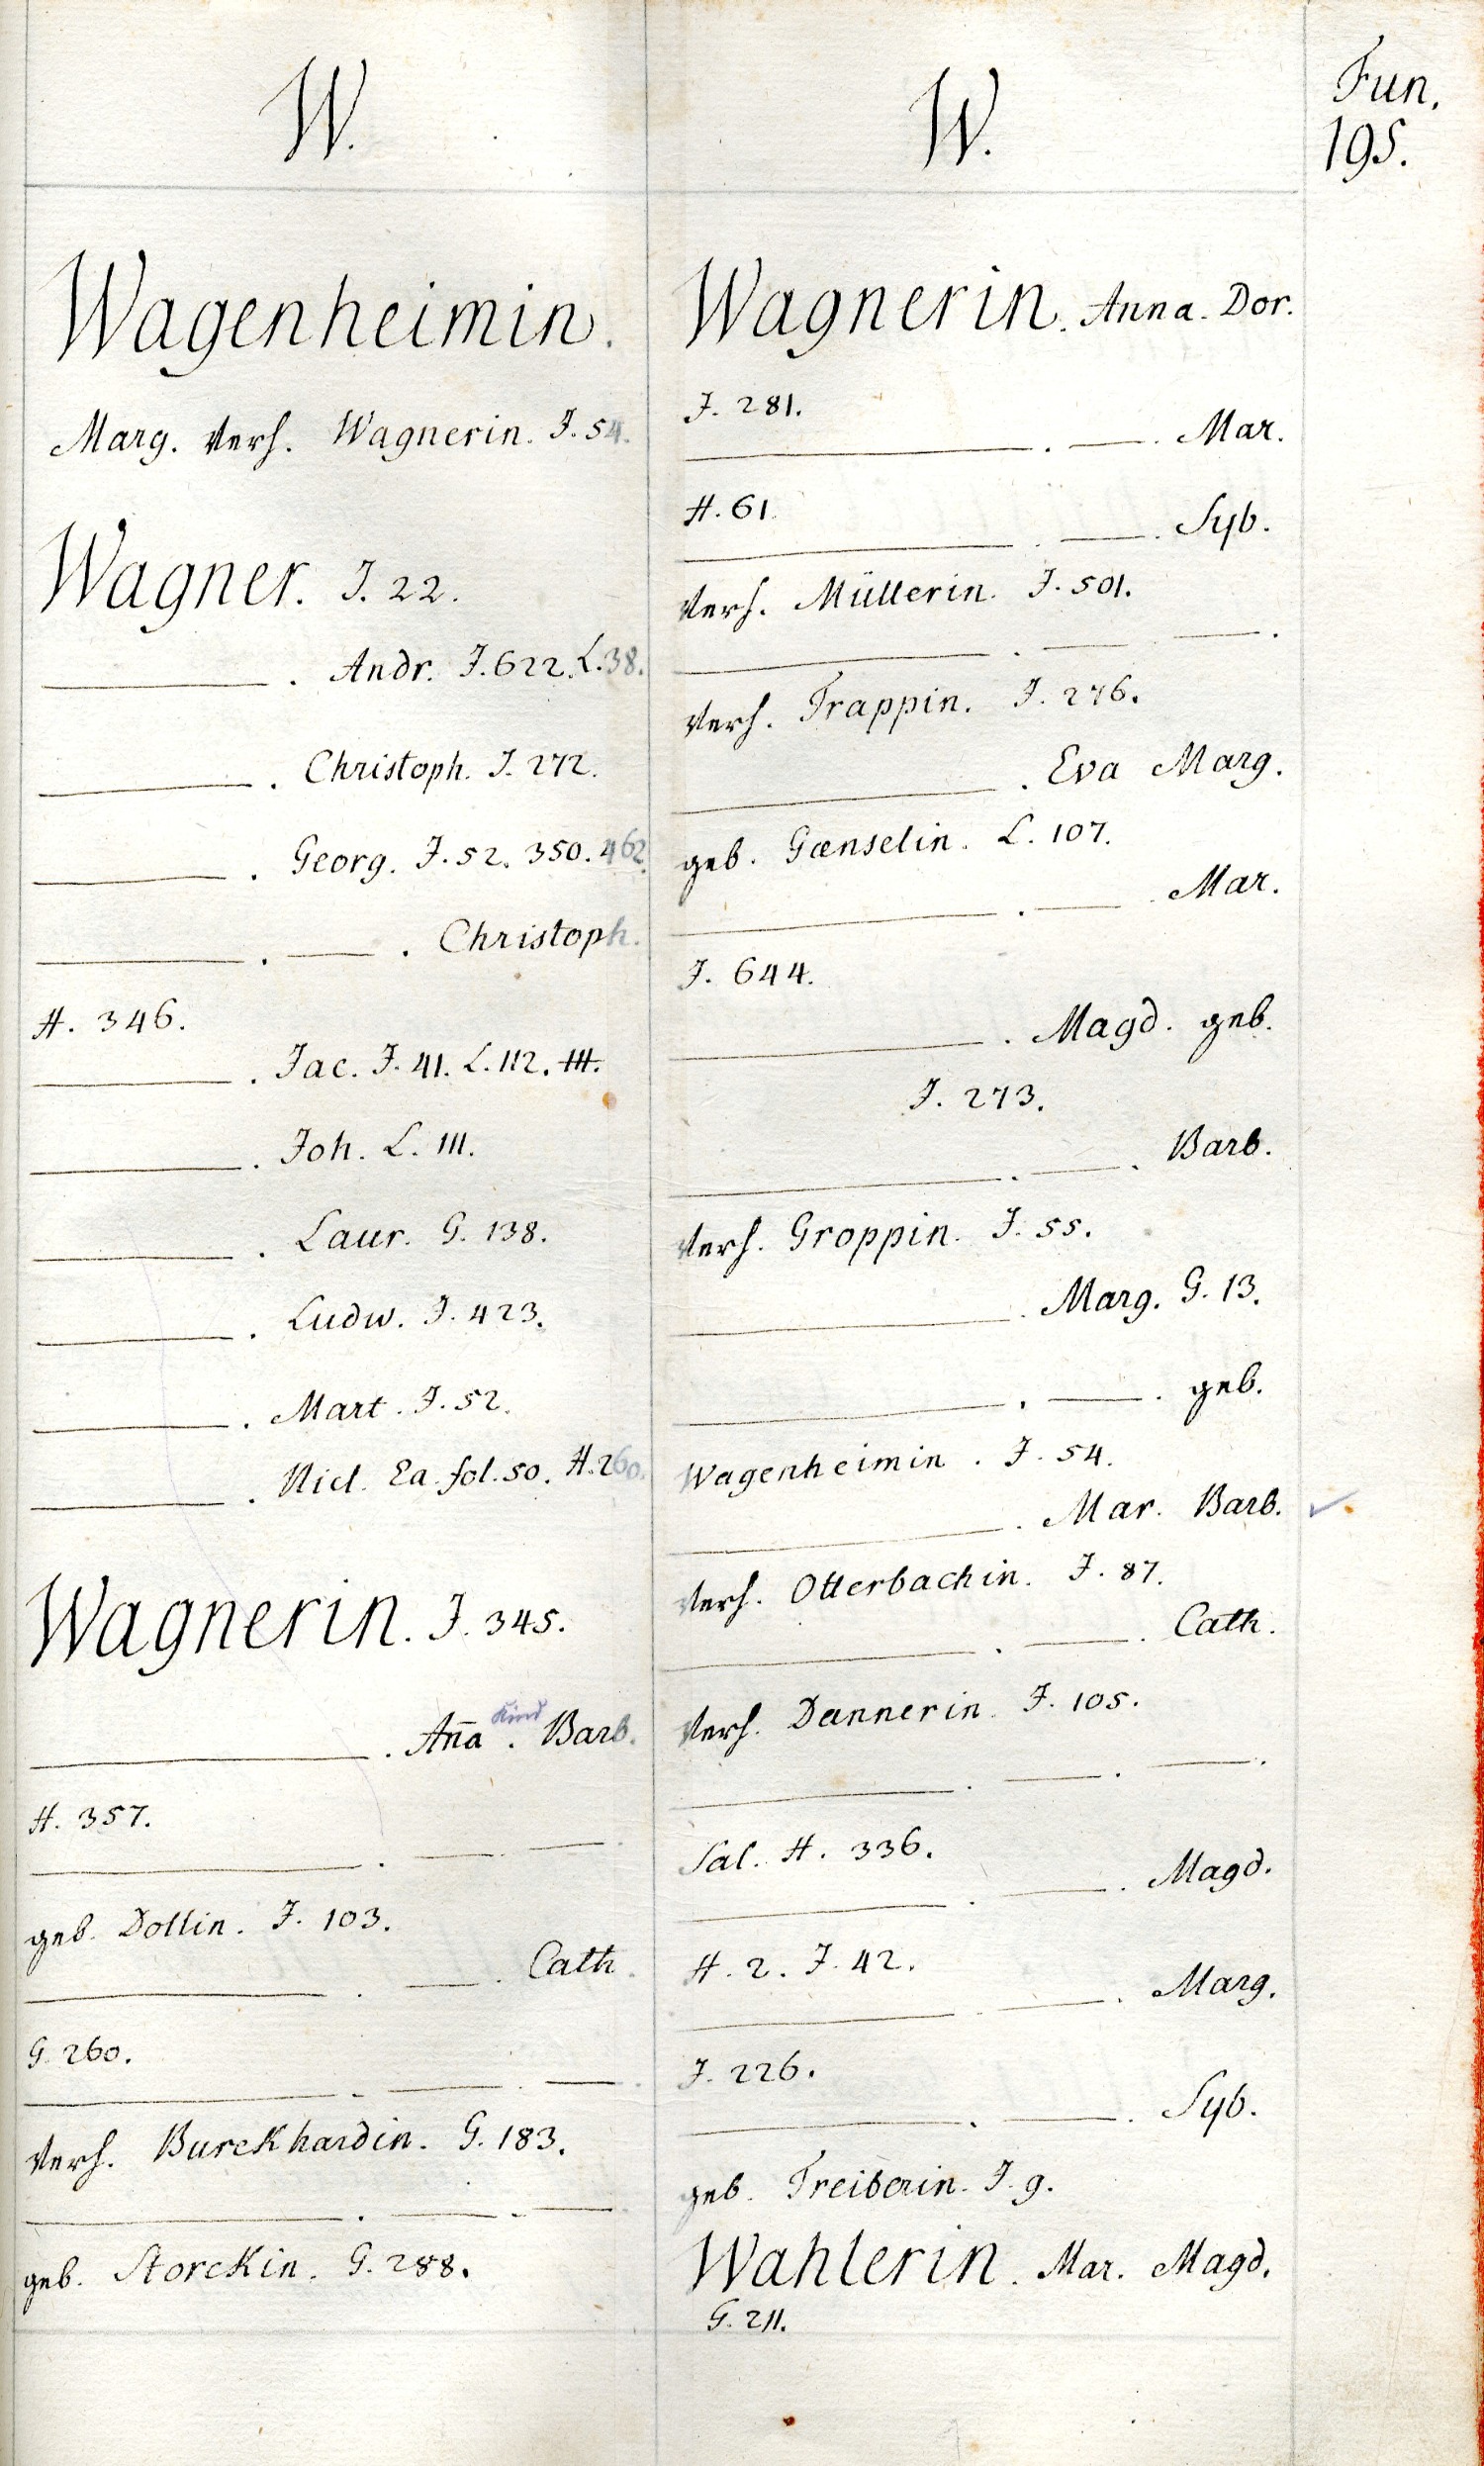 W.
Wagenheimin.
Marg. verh. Wagnerin. J. 54.
Wagner. J. 22.
———. Andr. J. 622. L. 38.
———. Christoph. J. 272.
———. Georg. J. 52. 350. 462.
———. —. Christoph.
H. 346.
———. Jac. J. 41. L. 112. 111.
———. Joh. L. 111.
———. Laur. G. 138.
———. Ludw. J. 423.
———. Mart. J. 52.
———. Nicl. Ea. fol. 50. H. 260.
Wagnerin. J. 345.
Kind
———. Am̄a. Barb.
H. 357.
———. — —.
geb. Dollin. J. 103.
———. —. Cath.
G. 260.
———. —. —.
verh. Burckhardin. G. 183.
———. —. —.
geb. Storckin. G. 288.
W.
Wagnerin. Anna. Dor.
J. 281.
———. —. Mar.
H. 61.
———. —. Syb.
verh. Müllerin. J. 501.
———. —. —.
verh. Trappin. J. 276.
———. Eva Marg.
geb. Gænselin. L. 107.
———. —. Mar.
J. 644.
———. Magd. geb.
J. 273.
———. —. Barb.
verh. Groppin. J. 55.
———. Marg. G. 13.
———. —. geb.
Wagenheimin. J. 54.
———. Mar. Barb.
verh. Otterbachin. J. 87.
———. —. Cath.
verh. Dannerin. J. 105.
———. —. —.
Sal. H. 336.
———. —. Magd.
H. 2. J. 42.
———. —. Marg.
J. 226.
———. —. Syb.
geb. Treiberin. J. 9.
Wahlerin. Mar. Magd.
G. 211.
Fun.
195.